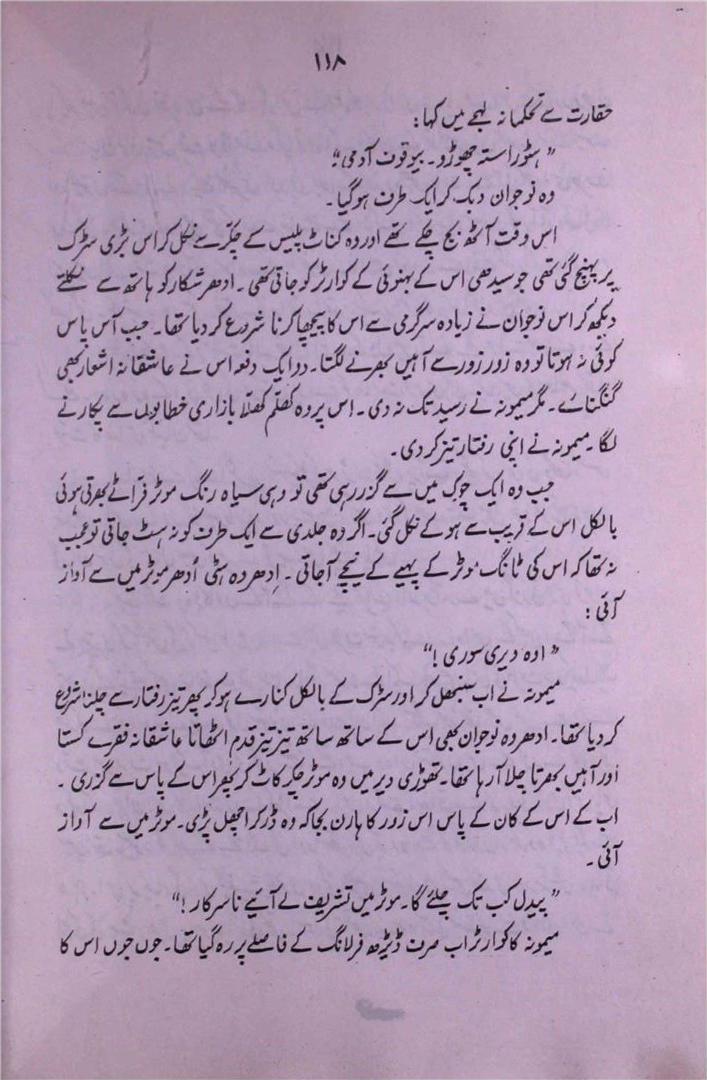 ۱۱۸
حقارت سے تحکمانہ لہجے میں کہا:
”ہٹو راستہ چھوڑو۔ بیوقوف آدمی!“
وہ نوجوان دبک کر ایک طرف ہو گیا۔
اس وقت آٹھ بج چکے تھے اور وہ کناٹ پلیس کے چکر سے نکل کر اس بڑی سڑک
پر پہنچ گئی تھی جو سیدھی اس کے بہنوئی کے کوارٹر کو جاتی تھی۔ ادھر شکار کو ہاتھ سے نکلتے
دیکھ کر اس نوجوان نے زیادہ سرگرمی سے اس کا پیچھا کرنا شروع کر دیا تھا۔ جب آس پاس
کوئی نہ ہوتا تو وہ زور زور سے آہیں بھرنے لگتا۔ دو ایک دفعہ اس نے عاشقانہ اشعار بھی
گنگنائے۔ مگر میمونہ نے رسید تک نہ دی۔ اِس پر وہ کھلم کھلا بازاری خطابوں سے پکارنے
لگا۔ میمونہ نے اپنی رفتار تیز کر دی۔
جب وہ ایک چوک میں سے گزر رہی تھی تو وہی سیاہ رنگ موٹر فراٹے بھرتی ہوئی
بالکل اس کے قریب سے ہو کے نکل گئی۔ اگر وہ جلدی سے ایک طرف کو نہ ہٹ جاتی تو عجب
نہ تھا کہ اس کی ٹانگ موٹر کے پہیے کے نیچے آ جاتی۔ اِدھر وہ ہٹی اُدھر موٹر میں سے آواز
آئی:
”اوہ ویری سوری!“
میمونہ نے اب سنبھل کر اور سڑک کے بالکل کنارے ہو کر پھر تیز رفتار سے چلنا شروع
کر دیا تھا۔ ادھر وہ نوجوان بھی اس کے ساتھ ساتھ تیز تیز قدم اٹھاتا عاشقانہ فقرے کستا
اور آہیں بھرتا چلا آ رہا تھا۔ تھوڑی دیر میں وہ موٹر چکر کاٹ کر پھر اس کے پاس سے گزری۔
اب کے اس کے کان کے پاس اس زور کا ہارن بجا کہ وہ ڈر کر اچھل پڑی۔ موٹر میں سے آواز
آئی۔
”پیدل کب تک چلئے گا۔ موٹر میں تشریف لے آئیے نا سرکار!“
میمونہ کا کوارٹر اب صرف ڈیڑھ فرلانگ کے فاصلے پر رہ گیا تھا۔ جوں جوں اس کا